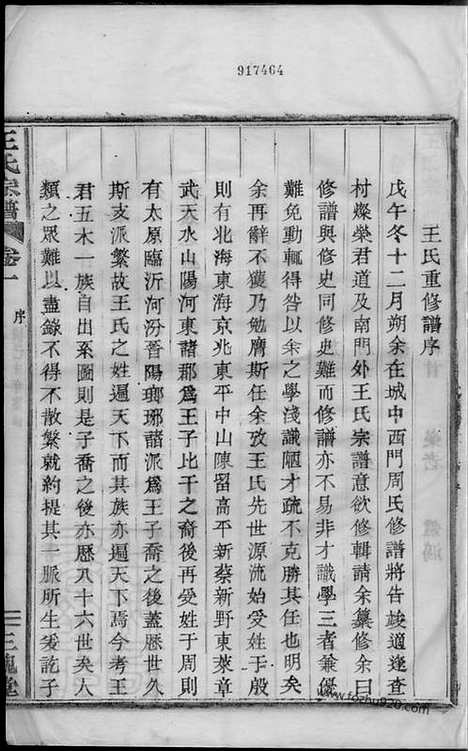 917464
王氏重修譜序
戊午冬十二月朔余在城中西門周氏修譜將告竣適逢查
村燦榮君道及南門外王氏宗譜意欲修輯請余纂修余曰
修譜與修史同修史難而修譜亦不易非才識學三者兼優
難免動輒得咎以余之學淺識陋才疏不克勝其任也明矣
余再辭不獲乃勉膺斯任余攷王氏先世源流始受姓于殷
則有北海東海京兆東平中山陳留高平新蔡新野東萊章
武天水山陽河東諸郡為王子比干之裔後再受姓于周則
有太原臨沂河汾晉陽瑯琊諸派為王子喬之後蓋歷世久
斯支派繁故王氏之姓遍天下而其族亦遍天下焉今考王
君五木一族自出系圖則是子喬之後亦歷八十六世矣人
類之眾難以盡錄不得不散繁就約提其一脈所生爰訖子
王氏宗譜
卷一
序
三
三槐堂
www.fozhu920.com